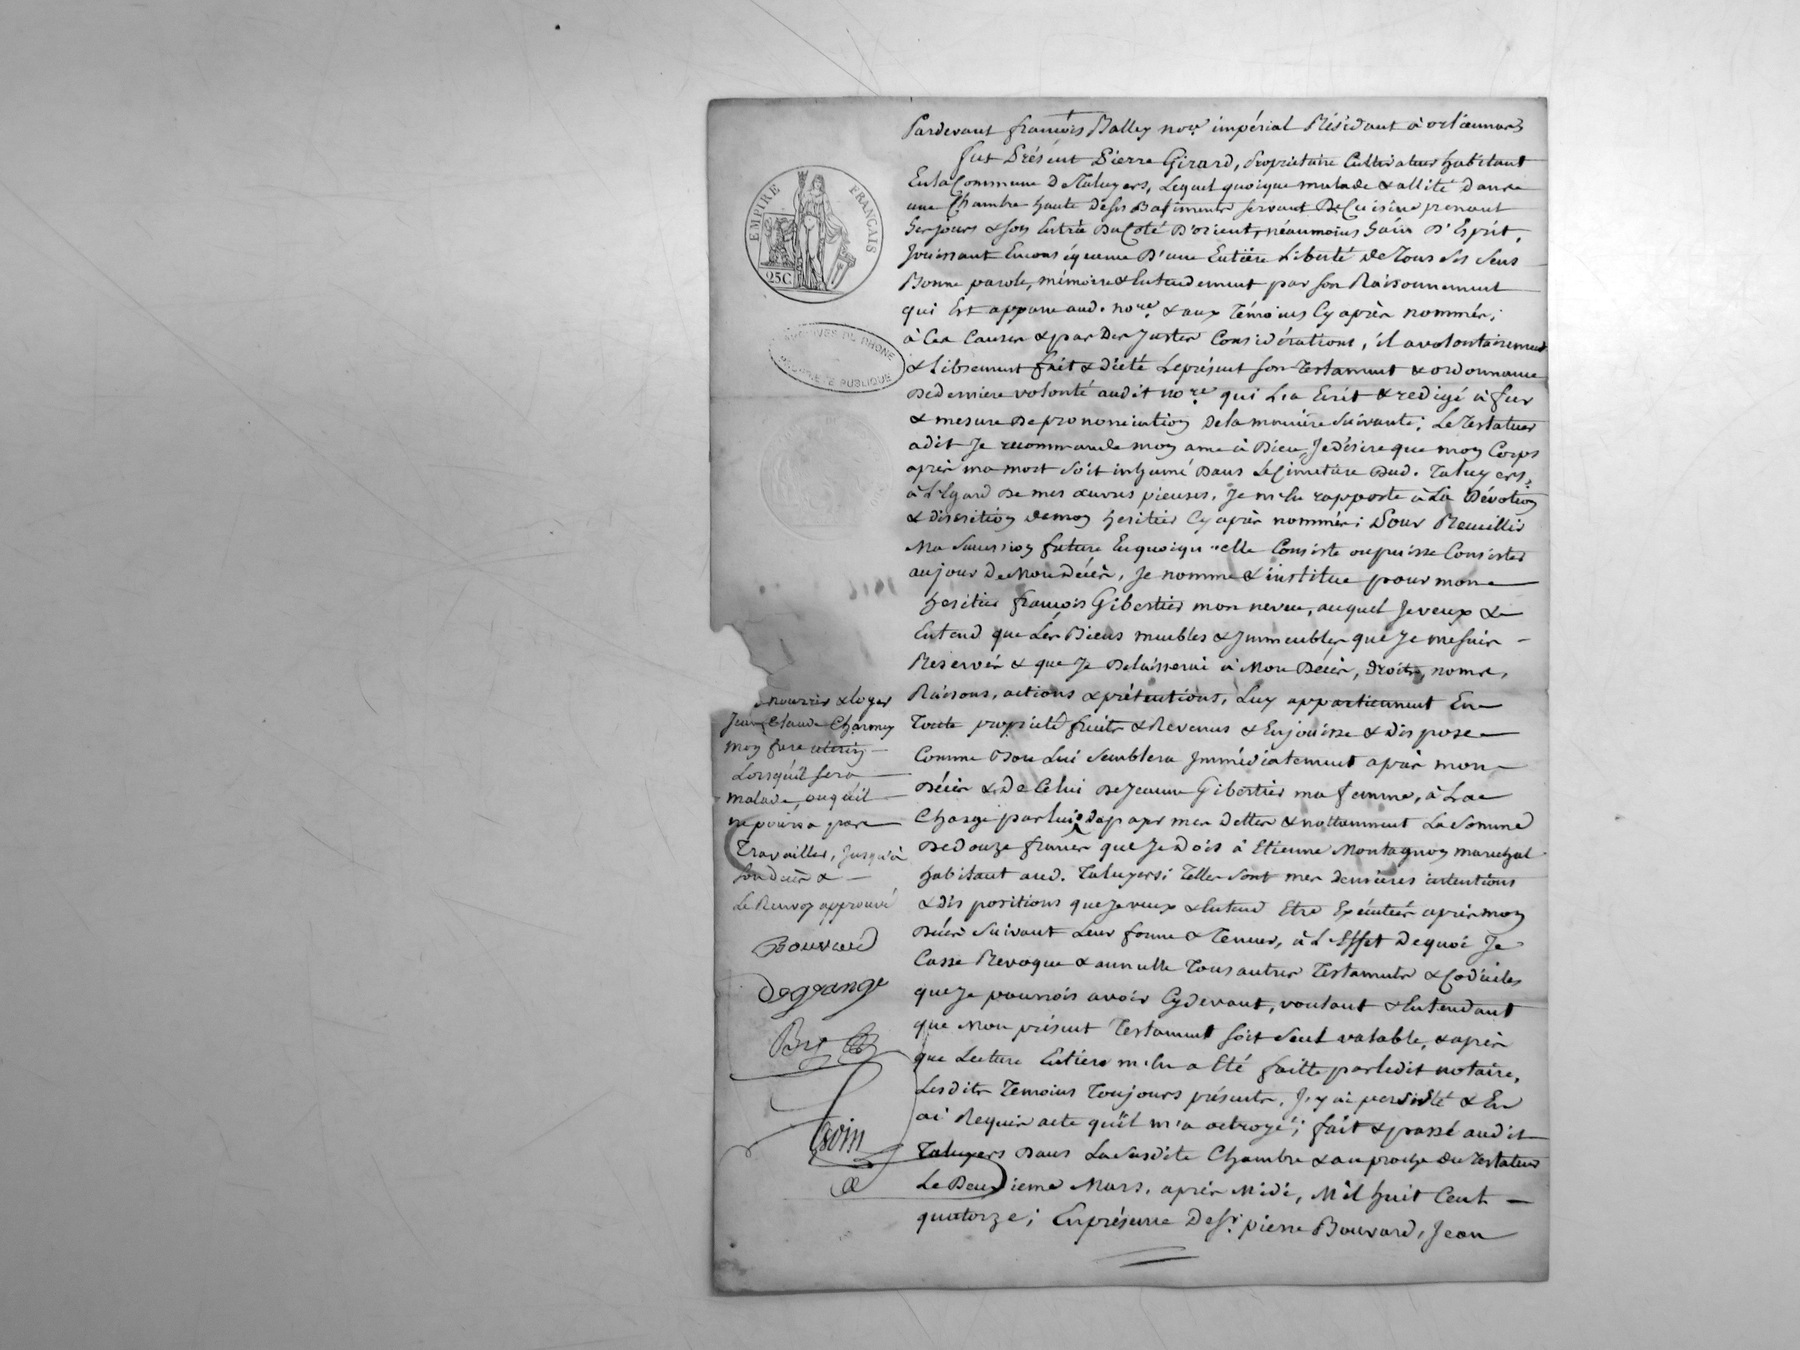 Pardevant françois Balley nore. impérial Résidant à orliennas
fut Présent Pierre Girard, Proprietaire Cultivateur habitant
En la Commune De Taluyers, Lequel quoique malade & allité dans
une Chambre haute de ses Batiments servant De Cuisine prenant
Ses jours & son Entrée Du Coté D'orient, néaumoins Sain D'Esprit,
Jouissant En conséquence D'une Entière Liberté de Tous Ses Sens
Bonne parole, mémoire & Entendement par son Raisonnement
qui Est apparu aud. nore. & aux Témoins Cy après nommés;
à Ces Causes & par Des Justes Considérations, il a volontairement
& Librement fait & dicté Le présent son Testament & ordonnance
De derniere volonté audit nore. qui L'a Ecrit & redigé à fur
& mesure De prononciation De la manière Suivante; Le Testateur
a dit Je recommande mon ame à Dieu, Je désire que mon Corps
après ma mort Soit inhumé Dans Le Cimetière Dud. Taluyers,
à L'Egard De mes œuvres pieuses, Je m'En rapporte à La Dévotion
& Discrétion de mon heritier Cy après nommé; Pour Recuillir
Ma Succession future En quoiqu'elle Consiste ou puisse Consister
au jour De Mon Décès, Je nomme & institue pour mon
heritier françois Gibertier mon neveu, auquel Je veux &
Entend que Les Biens meubles & Immeubles que Je me suis
Réservés & que Je Delaisserai à Mon Décès, Droits, noms,
Raisons, actions & prétentions, Luy appartiennent En
Toute propriété fruits & Revenus & En jouisse & dispose
Comme Bon Lui Semblera Immédiatement après mon
Décès & De Celui De Jeanne Gibertier ma femme, à La
Charge par lui De payer mes Dettes & nottamment La Somme
De douze francs que Je Dois à Etienne Montagnon marechal
habitant aud. Taluyers; Telles Sont mes dernieres intentions
& Dispositions que Je veux & Entend Etre Exécutées après mon
Décès Suivant Leur forme & Teneur, à L'Effet De quoi Je
Casse Revoque & annulle Tous autres Testaments & Codiciles
que Je pourrois avoir Cy devant, voulant & Entendant
que Mon présent Testament soit Seul valable, & après
que Lecture Entiere m'En a Eté faitte par ledit notaire,
Lesdits Temoins Toujours présents, J'y ai persisté & En
ai Requis acte qu'il m'a octroyé; fait & passé audit
Taluyers Dans La Susdite Chambre & au proche du Testateur
Le Deuxieme Mars, après Midi, Mil huit Cent
quatorze; En présence De Sr. pierre Bouvard, Jean
nourrir & loger
Jean Claude Charmey
mon frere utérin
Lorsqu'il sera
malade, ou qu'il
ne pourra pas
Travailler, Jusqu'à
Son Décès &
Le Renvoy approuvé
Bouvard
Degrange
EMPIRE FRANÇAIS
25C
ARCHIVES DU RHONE
PROPRIÉTÉ PUBLIQUE